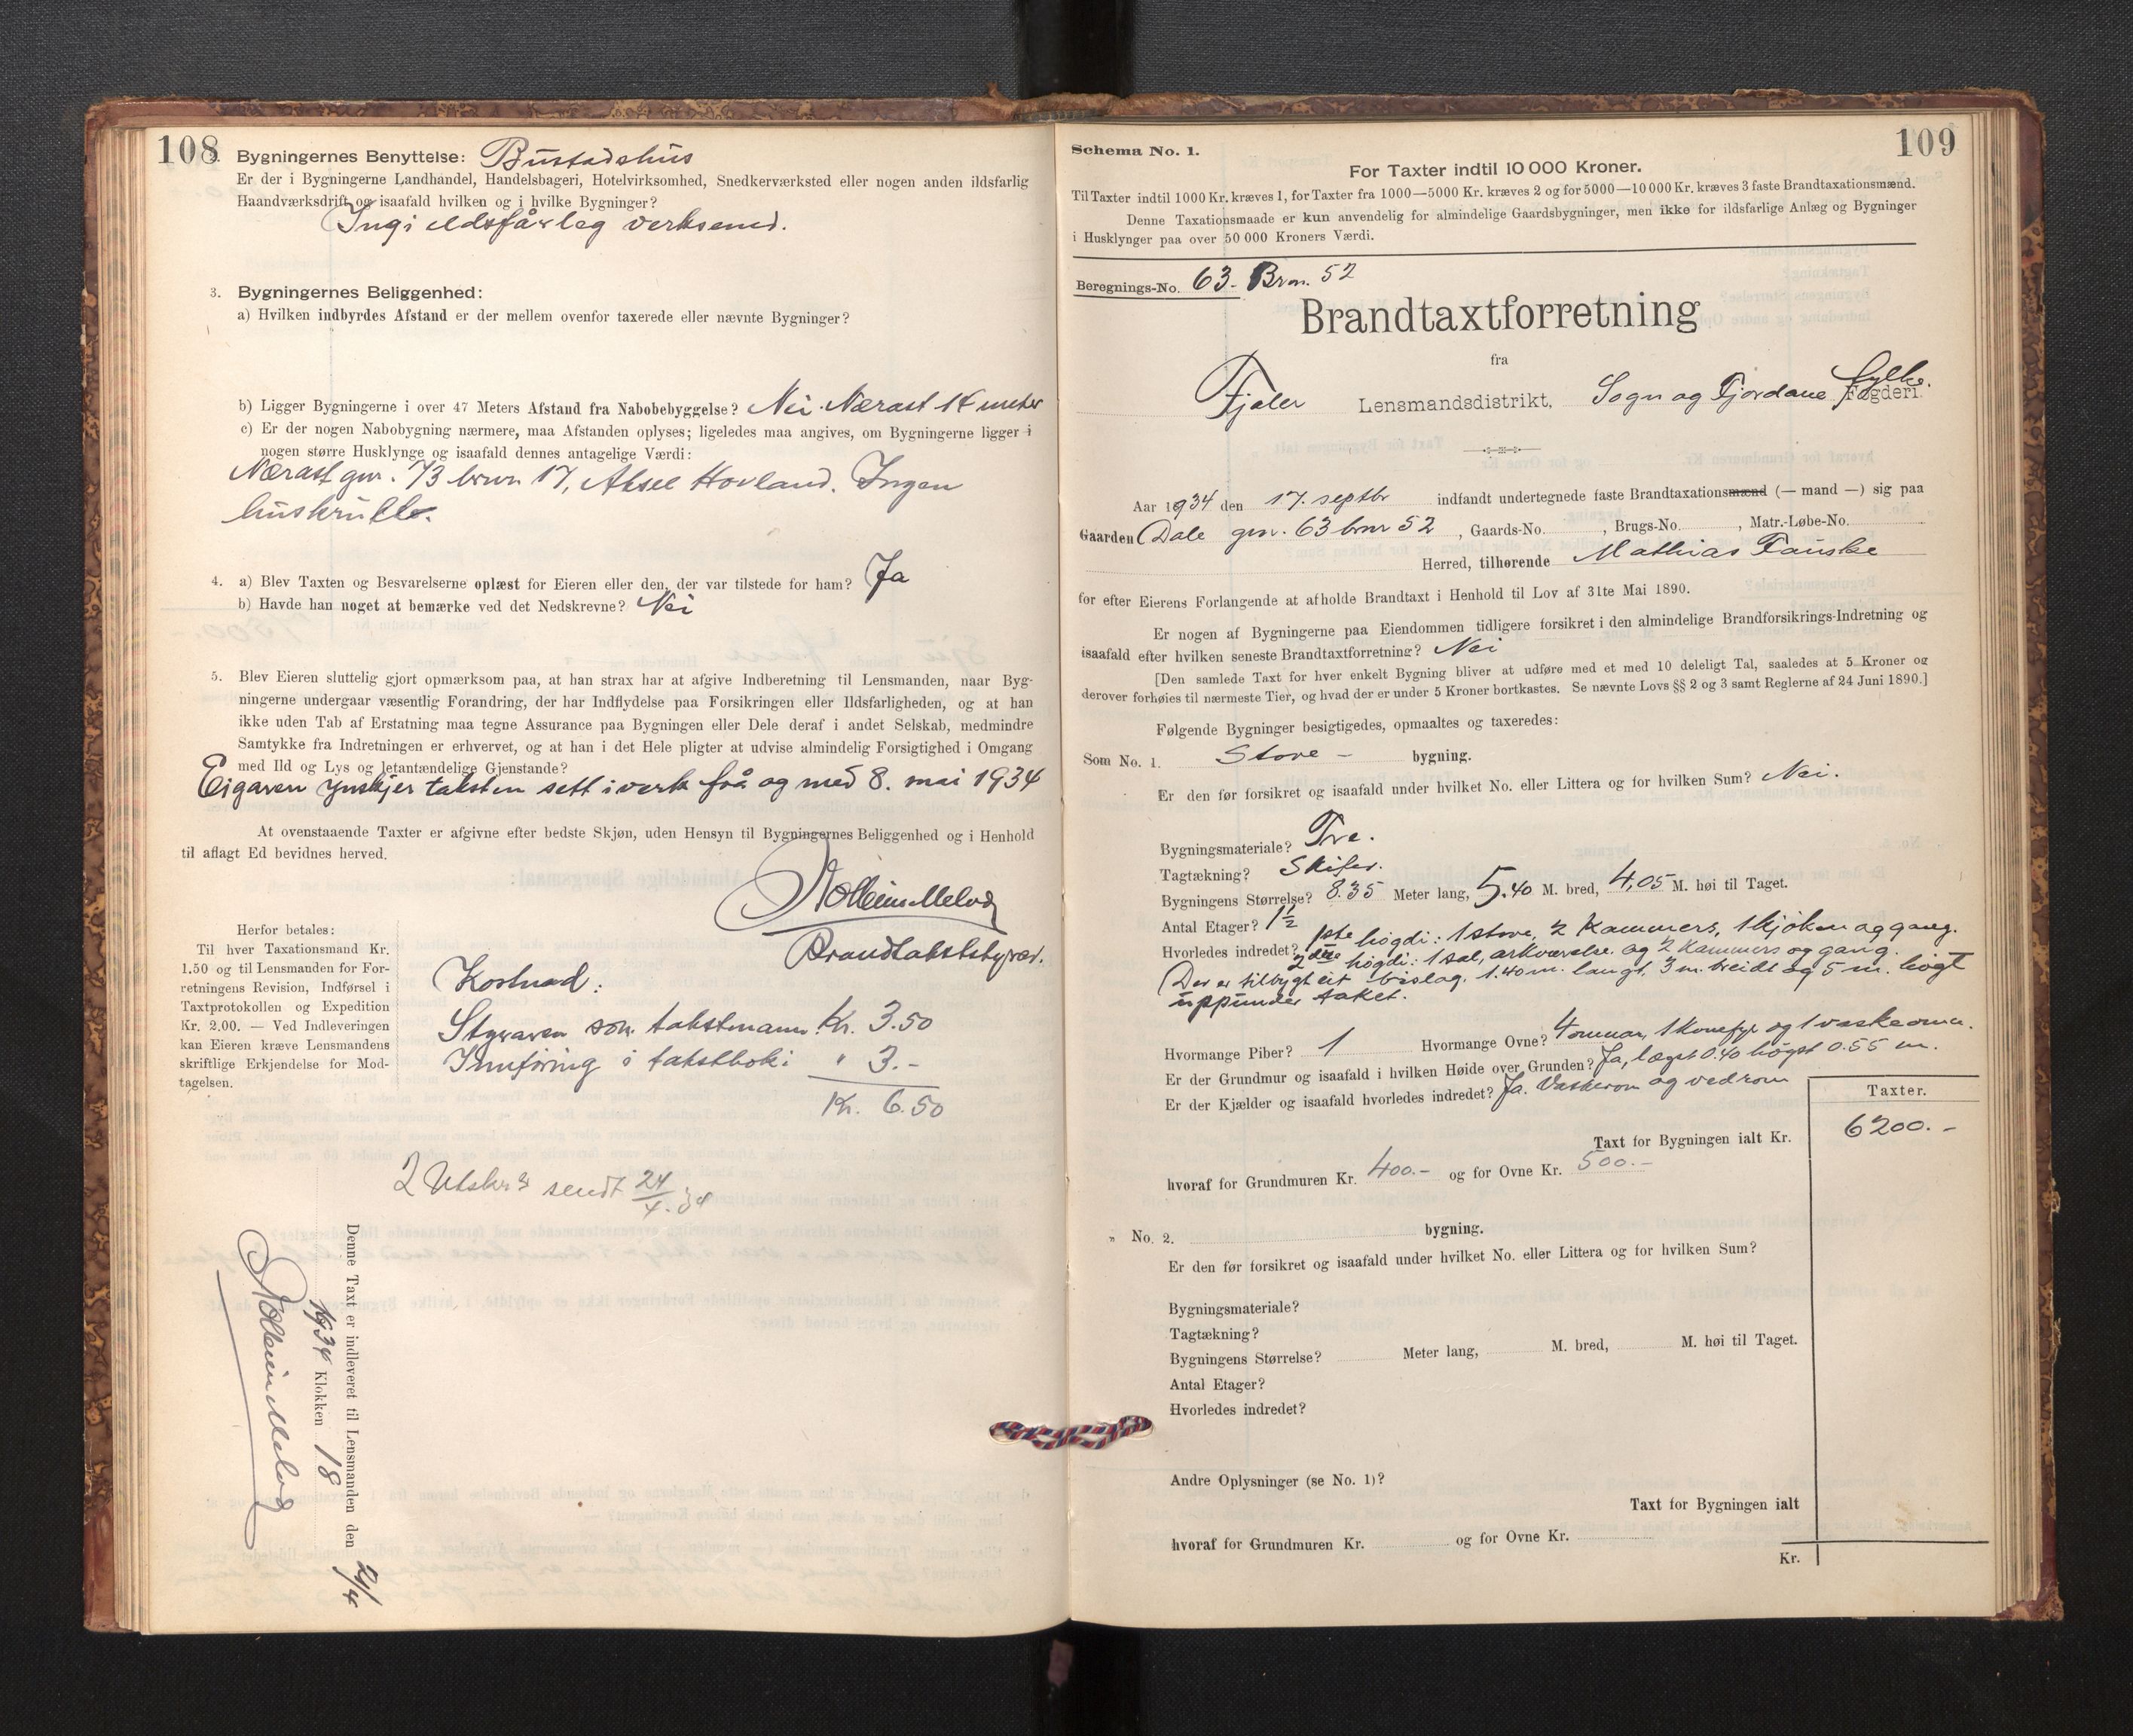 108
2. Bygningernes Benyttelse: Bustadshus
Er der i Bygningerne Landhandel, Handelsbageri, Hotelvirksomhed, Snedkerværksted eller nogen anden ildsfarlig
Haandværksdrift, og isaafald hvilken og i hvilke Bygninger?
Ingi eldsfårleg verksemd.
3. Bygningernes Beliggenhed:
a) Hvilken indbyrdes Afstand er der mellem ovenfor taxerede eller nævnte Bygninger?
b) Ligger Bygningerne i over 47 Meters Afstand fra Nabobebyggelse? Nei. Nærast 14 meter
c) Er der nogen Nabobygning nærmere, maa Afstanden oplyses; ligeledes maa angives, om Bygningerne ligger i
nogen større Husklynge og isaafald dennes antagelige Værdi:
Nærast gnr. 73 brnr 17, Aksel Hovland. Ingen
huskrull.
4. a) Blev Taxten og Besvarelserne oplæst for Eieren eller den, der var tilstede for ham? Ja
b) Havde han noget at bemærke ved det Nedskrevne? Nei
5. Blev Eieren sluttelig gjort opmærksom paa, at han strax har at afgive Indberetning til Lensmanden, naar Byg-
ningerne undergaar væsentlig Forandring, der har Indflydelse paa Forsikringen eller Ildsfarligheden, og at han
ikke uden Tab af Erstatning maa tegne Assurance paa Bygningen eller Dele deraf i andet Selskab, medmindre
Samtykke fra Indretningen er erhvervet, og at han i det Hele pligter at udvise almindelig Forsigtighed i Omgang
med Ild og Lys og letantændelige Gjenstande?
Eigaren ynskjer taksten sett i verk frå og med 8. mai 1934
At ovenstaaende Taxter er afgivne efter bedste Skjøn, uden Hensyn til Bygningernes Beliggenhed og i Henhold
til aflagt Ed bevidnes herved.
Brandtakststyrar.
Herfor betales:
Til hver Taxationsmand Kr.
1.50 og til Lensmanden for For-
retningens Revision, Indførsel i
Taxtprotokollen og Expedition
Kr. 2.00. — Ved Indleveringen
kan Eieren kræve Lensmandens
skriftlige Erkjendelse for Mod-
tagelsen.
Kostnad:
Styraren som takstmann Kr. 3.50
Innføring i takstboki " 3.-
Kr. 6.50
2 Utskr. sendt 24/4.34
Denne Taxt er indleveret til Lensmanden den 24/4
1934 Klokken 18
109
Schema No. 1.
For Taxter indtil 10 000 Kroner.
Til Taxter indtil 1000 Kr. kræves 1, for Taxter fra 1000—5000 Kr. kræves 2 og for 5000—10 000 Kr. kræves 3 faste Brandtaxationsmænd.
Denne Taxationsmaade er kun anvendelig for almindelige Gaardsbygninger, men ikke for ildsfarlige Anlæg og Bygninger
i Husklynger paa over 50 000 Kroners Værdi.
Beregnings-No. 63. Brnr. 52
Brandtaxtforretning
fra
Fjaler Lensmandsdistrikt, Sogn og Fjordane Fylke. Fogderi
Aar 1934 den 17. septbr indfandt undertegnede faste Brandtaxationsmænd (— mand —) sig paa
Gaarden Dale gnr. 63 brnr 52, Gaards-No. , Brugs-No. , Matr.-Løbe-No.
Herred, tilhørende Mathias Fauske
for efter Eierens Forlangende at afholde Brandtaxt i Henhold til Lov af 31te Mai 1890.
Er nogen af Bygningerne paa Eiendommen tidligere forsikret i den almindelige Brandforsikrings-Indretning og
isaafald efter hvilken seneste Brandtaxtforretning? Nei
[Den samlede Taxt for hver enkelt Bygning bliver at udføre med et med 10 deleligt Tal, saaledes at 5 Kroner og
derover forhøies til nærmeste Tier, og hvad der er under 5 Kroner bortkastes. Se nævnte Lovs §§ 2 og 3 samt Reglerne af 24 Juni 1890.]
Følgende Bygninger besigtigedes, opmaaltes og taxeredes:
Som No. 1. Stove - bygning.
Er den før forsikret og isaafald under hvilket No. eller Littera og for hvilken Sum? Nei.
Bygningsmateriale? Tre.
Tagtækning? Skifer.
Bygningens Størrelse? 8.35 Meter lang, 5.40 M. bred, 4,05 M. høi til Taget.
Antal Etager? 1½
Hvorledes indredet? 1ste høgdi: 1 stove, 2 kammers, 1 kjøken og gang.
2dre høgdi: 1 sal, arkværelse og 2 kammers og gang.
Der er tilbygt eit bislag, 1.40 m. langt, 3 m. breidt og 5 m. høgt
uppunder taket.
Hvormange Piber? 1 Hvormange Ovne? 4 omnar, 1 komfyr og 1 vaskeomn.
Er der Grundmur og isaafald i hvilken Høide over Grunden? Ja, lægst 0.40 høgst 0.55 m.
Er der Kjælder og isaafald hvorledes indredet? Ja. Vaskerom og vedrom
Taxter.
Taxt for Bygningen ialt Kr. 6200.-
hvoraf for Grundmuren Kr. 400.- og for Ovne Kr. 500.-
" No. 2. bygning.
Er den før forsikret og isaafald under hvilket No. eller Littera og for hvilken Sum?
Bygningsmateriale?
Tagtækning?
Bygningens Størrelse? Meter lang, M. bred, M. høi til Taget.
Antal Etager?
Hvorledes indredet?
Andre Oplysninger (se No. 1)?
Taxt for Bygningen ialt
hvoraf for Grundmuren Kr. og for Ovne Kr.
Kr.